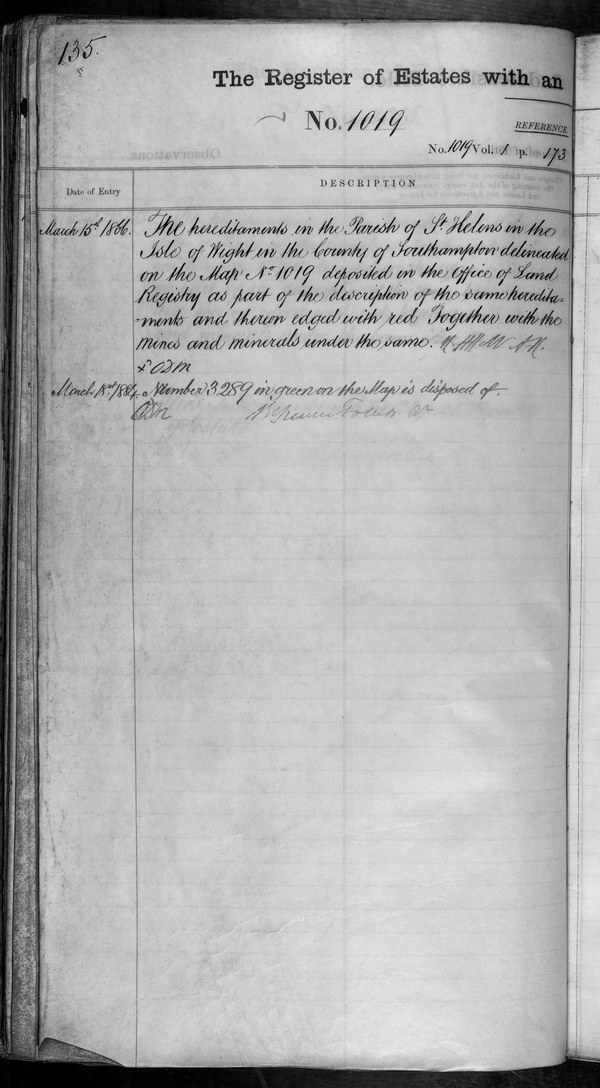 135.
The Register of Estates with an
No. 1019
REFERENCE
No. 1019 Vol. 1 p. 173
Observations
Date of Entry
DESCRIPTION
March 15th 1866. The hereditaments in the Parish of St. Helens in the
Isle of Wight in the County of Southampton delineated
on the Map No. 1019 deposited in the Office of Land
Registry as part of the description of the same heredita-
-ments and thereon edged with red Together with the
mines and minerals under the same.
March 18th 1884. Number 3289 in green on the Map is disposed of.